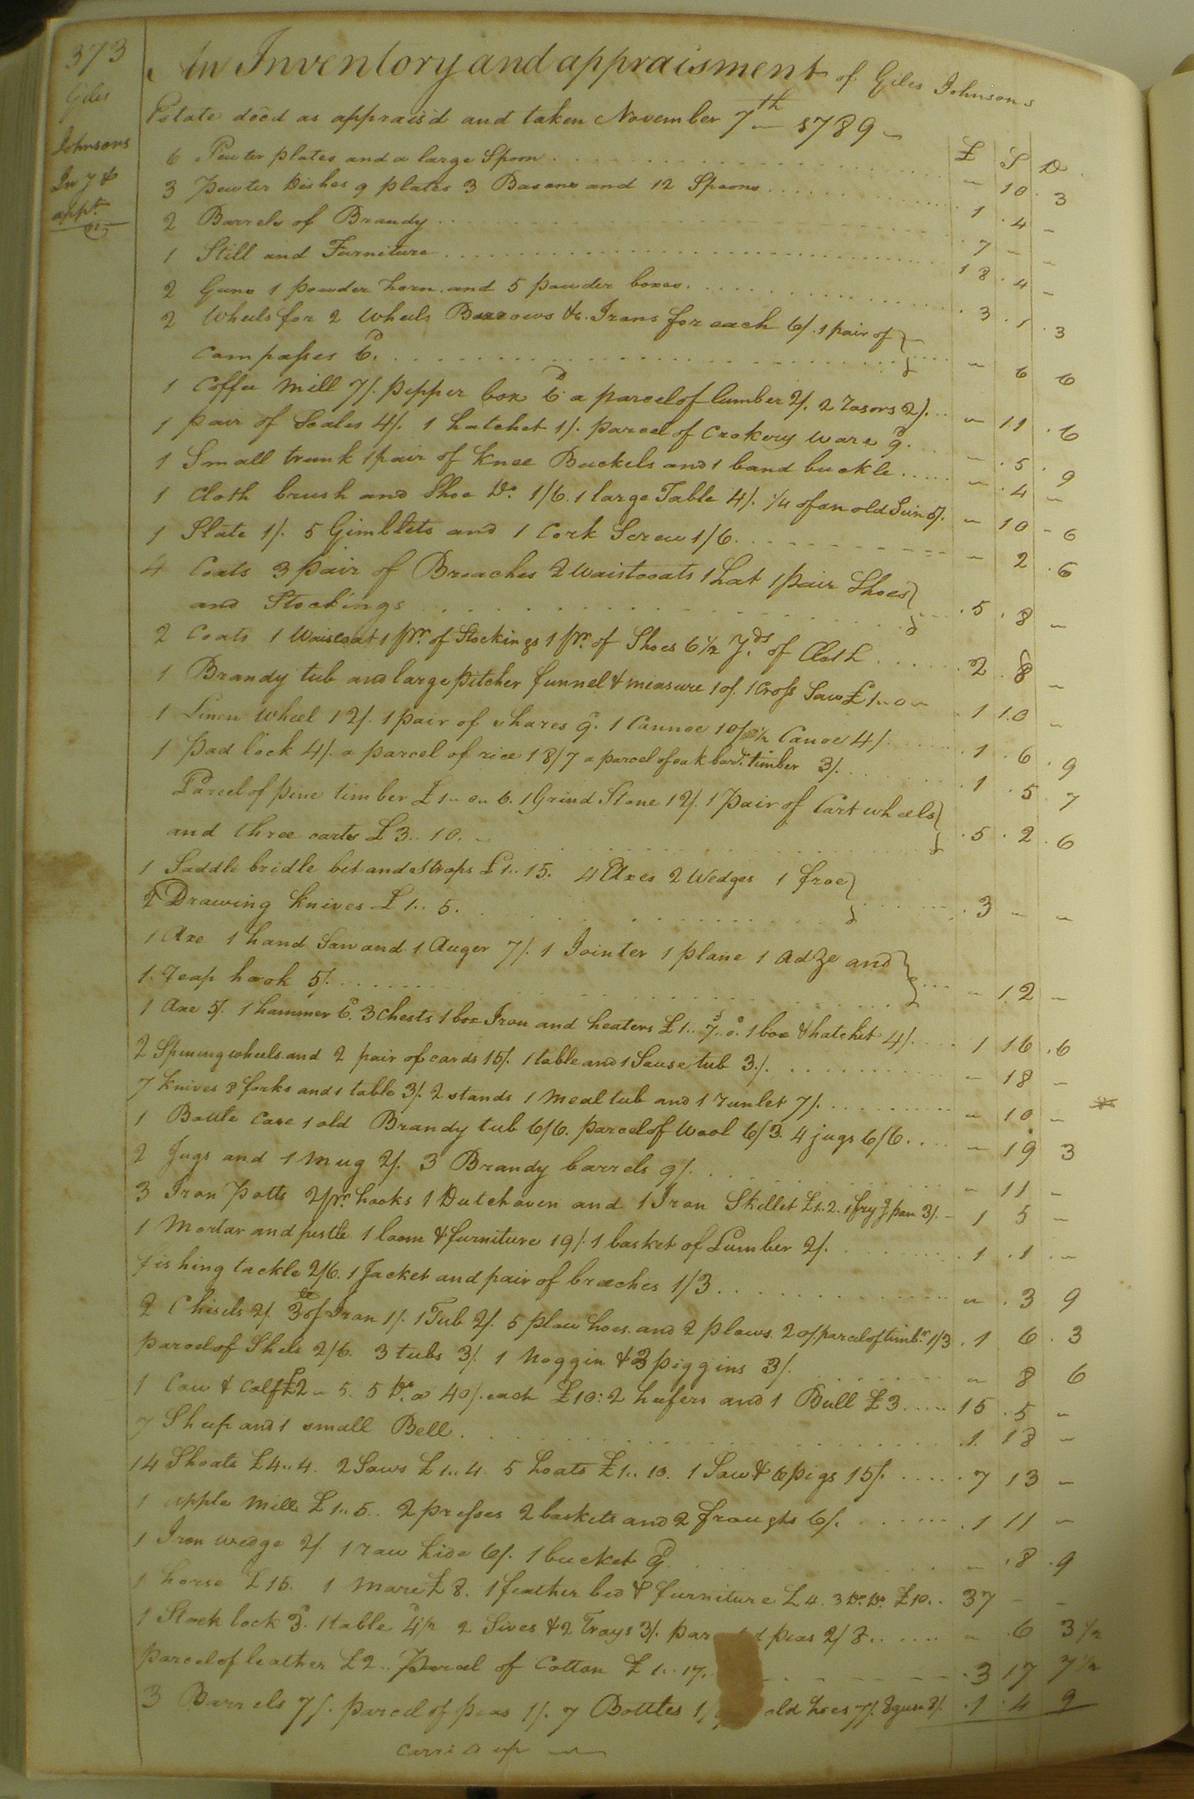 373
Giles
Johnsons
Inv.y &
app.t
An Inventory and appraisment of Giles Johnsons
Estate deed as apprais'd and taken November 7th 1789
£ S D
6 Pewter plates and a large Spoon - 10 3
3 Pewter Dishes 9 plates 3 Basons and 12 Spoons 1 4 -
2 Barrels of Brandy 7 - -
1 Still and Furniture 18 4 -
2 Guns 1 powder horn and 5 powder boxes 3 1 3
2 Wheels for 2 Wheels Barrows &c. Irons for each 6/. 1 pair of
Compasses 6d - 6 6
1 Coffee Mill 7/. pepper box 6d a parcel of lumber 2/. 2 rasors 2/. - 11 6
1 pair of Scales 4/. 1 hatchet 1/. parcel of Crokery ware 9d - 5 9
1 Small trunk 1 pair of Knee Buckels and 1 band buckle - 4 -
1 Cloth brush and Shoe Do. 1/6. 1 large Table 4/. 1/4 of an old Sein 5/. - 10 6
1 Slate 1/. 5 Gimblets and 1 Cork Screw 1/6 - 2 6
4 Coats 3 pair of Breaches 2 Waistcoats 1 hat 1 pair Shoes
and Stockings 5 8 -
2 Coats 1 Waiscoat 1 pr. of Stockings 1 pr. of Shoes 6 1/2 Yds of Cloth 2 8 -
1 Brandy tub and large pitcher funnel & measure 10/. 1 Cross Saw £1..0 - 1 10 -
1 Linen Wheel 12/. 1 pair of shares 9d. 1 Cannoe 10/ 1/2 Canoe 4/. 1 6 9
1 pad lock 4/. a parcel of rice 18/7 a parcel of oak bard. timber 3/. 1 5 7
Parcel of pine timber £1..0..6. 1 Grind Stone 12/. 1 pair of Cart wheels
and three carts £3..10. - 5 2 6
1 Saddle bridle bit and Straps £1..15. 4 Axes 2 Wedges 1 froe
2 Drawing Knives £1..5. 3 - -
1 Axe 1 hand Saw and 1 Auger 7/. 1 Jointer 1 plane 1 adze and
1 reap hook 5/. - 12 -
1 Axe 5/. 1 hammer 6d. 3 Chests 1 box Iron and heaters £1..7..0. 1 box & hatchet 4/. 1 16 6
2 Spining wheels and 2 pair of cards 15/. 1 table and 1 Sause tub 3/. - 18 -
7 Knives 8 forks and 1 table 3/. 2 stands 1 meal tub and 1 runlet 7/. - 10 -
1 Bottle Case 1 old Brandy tub 6/6. parcel of Wool 6/3. 4 jugs 6/6. - 19 3
2 Jugs and 1 Mug 2/. 3 Brandy barrels 9/. - 11 -
3 Iron Potts 2 pr. hooks 1 Dutch oven and 1 Iron Skillet £1.2. 1 frying pan 3/. - 1 5 -
1 Mortar and pestle 1 loom & furniture 19/. 1 basket of Lumber 2/. 1 1 -
fishing tackle 2/6. 1 Jacket and pair of breeches 1/3 - 3 9
2 Chisels 2/. 3 lb of Iron 1/. 1 Tub 2/. 5 plow hoes and 2 plows 20/ parcel of timbr. 1/3 1 6 3
parcel of Shels 2/6. 3 tubs 3/. 1 Noggin & 3 piggins 3/. - 8 6
1 Cow & Calf £2 - 5. 5 Do. @ 40/. each £10: 2 heifers and 1 Bull £3 15 5 -
7 Sheep and 1 small Bell 1 18 -
14 Shoats £4..4. 2 Sows £1..4. 5 hoats £1..10. 1 Sow & 6 pigs 15/. 7 13 -
1 apple Mill £1..5.. 2 presses 2 baskets and 2 froughs 6/. 1 11 -
1 Iron wedge 2/. 1 raw hide 6/. 1 bucket 9d - 8 9
1 horse £15. 1 Mare £8. 1 feather bed & furniture £4. 3 Do. Do. £10.. 37 - -
1 Stock lock 3d. 1 table 4d 1/2 2 Sives & 2 Trays 3/. par peas 2/8 - 6 3 1/2
parcel of leather £2.. Parcel of Cotton £1..17. 3 17 7 1/2
3 Barrels 7/. parcel of peas 1/. 7 Bottles 1/ old hoes 7/. 1 4 9
carri'd up